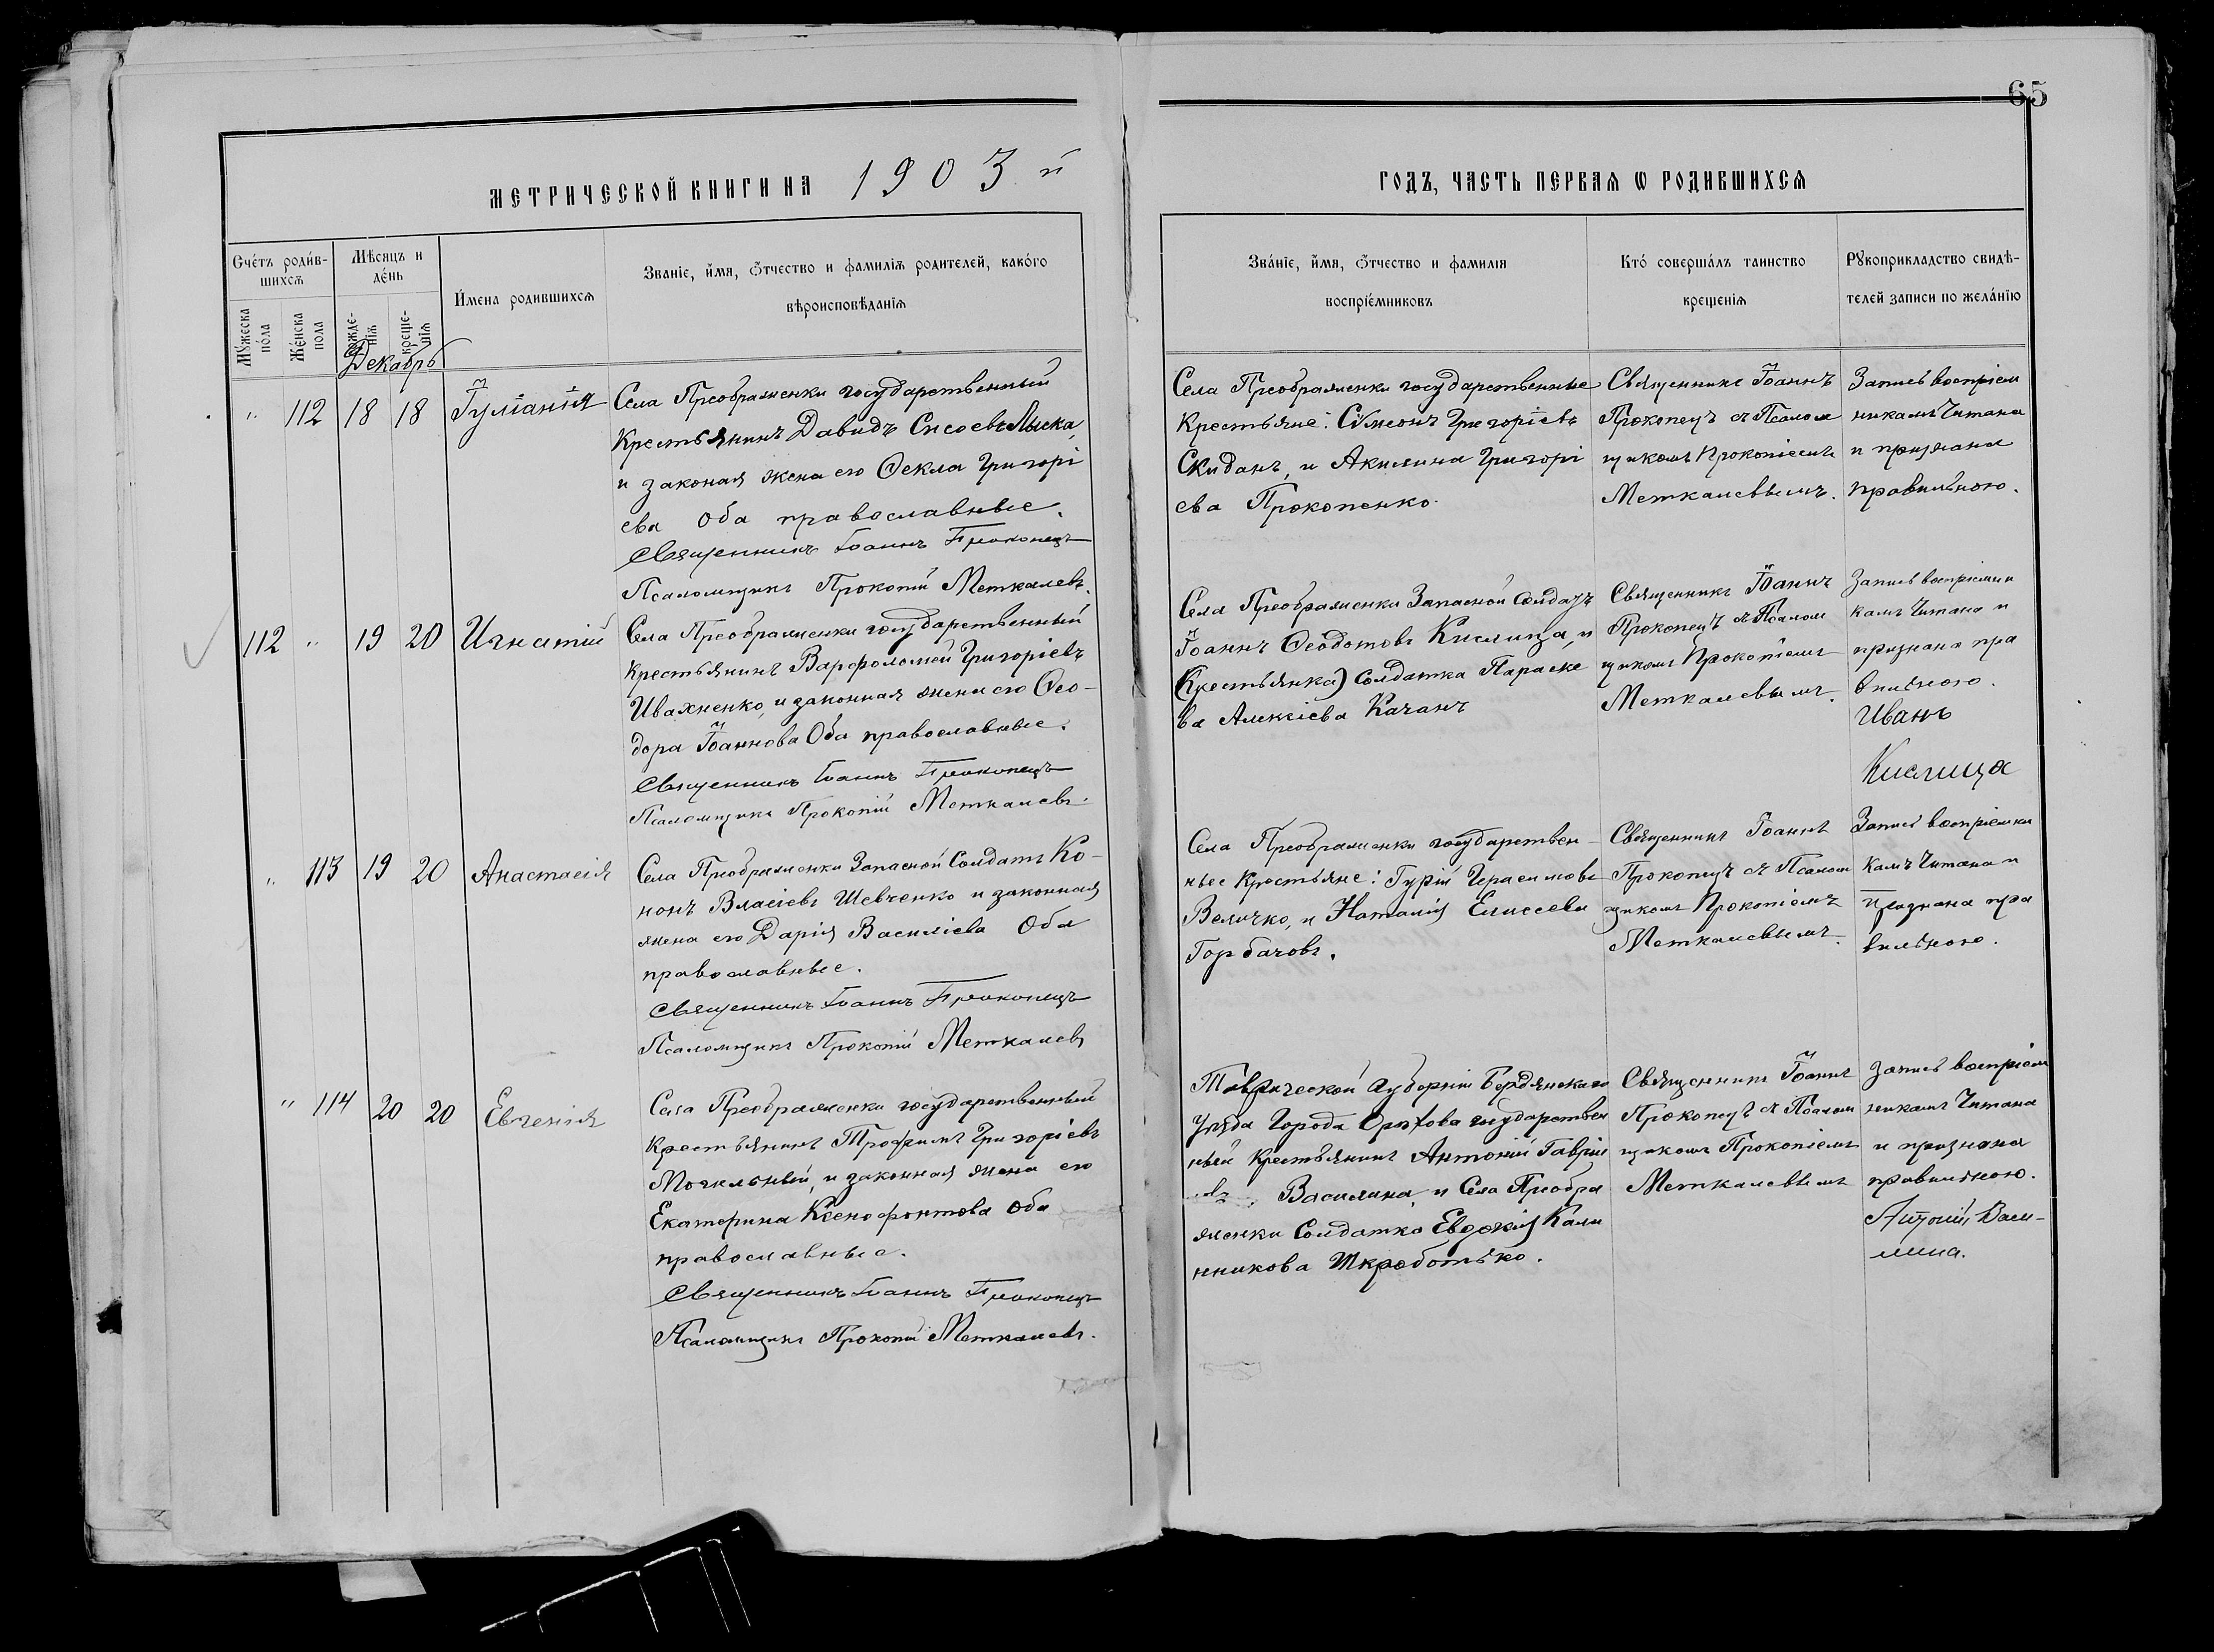 65
МЕТРИЧЕСКОЙ КНИГИ НА 1903 й
ГОДЪ, ЧАСТЬ ПЕРВАЯ Ѡ РОДИВШИХСЯ
Счетъ родив-
шихся
Мѣсяцъ и
день
Имена родившихся
Званіе, имя, отчество и фамилія родителей, какого
вѣроисповѣданія
Мужеска
пола
Женска
пола
рожде-
нія
креще-
нія
Званіе, имя, отчество и фамилія
воспріемниковъ
Кто совершалъ таинство
крещенія
Рукоприкладство свидѣ-
телей записи по желанію
Декабрь
" 112 18 18 Іуліанія
Села Преображенки государственный
Крестьянинъ Давидъ Сисоевъ Лыска,
и законая жена его Ѳекла Григорі
ева Оба православные.
Священникъ Іоаннъ Прокопецъ
Псаломщикъ Прокопій Меткалевъ.
Села Преображенки государственные
Крестьяне: Сѵмеонъ Григоріевъ
Скиданъ, и Акилина Григорі
ева Прокопенко.
Священникъ Іоаннъ
Прокопецъ съ Псалом
щикомъ Прокопіемъ
Меткалевымъ.
Запись воспріем
никамъ Читана
и признана
правильною.
112 " 19 20 Игнатій
Села Преображенки государственный
Крестьянинъ Варфоломей Григоріевъ
Ивахненко, и законная жена его Ѳео-
дора Іоаннова Оба православные.
Священникъ Іоаннъ Прокопецъ
Псаломщикъ Прокопій Меткалевъ.
Села Преображенки Запасной Солдатъ
Іоаннъ Ѳеодотовъ Кислица, и
(Крестьянка) Солдатка Параске
ва Алексіева Качанъ
Священникъ Іоаннъ
Прокопецъ съ Псалом
щикомъ Прокопіемъ
Меткалевымъ.
Запись воспріемни
камъ Читана и
признана пра
вильною.
Иванъ
Кислица
" 113 19 20 Анастасія
Села Преображенки Запасной Солдатъ Ко-
нонъ Власіевъ Шевченко и законная
жена его Дарія Василіева Оба
православные.
Священникъ Іоаннъ Прокопецъ
Псаломщикъ Прокопій Меткалевъ
Села Преображенки государствен-
ные Крестьяне: Гурій Герасимовъ
Величко, и Наталія Елисеева
Горбачовъ.
Священникъ Іоаннъ
Прокопецъ съ Псалом
щикомъ Прокопіемъ
Меткалевымъ.
Запись воспріемни
камъ Читана и
Признана пра
вильною.
" 114 20 20 Евгенія
Села Преображенки государственный
Крестьянинъ Трофимъ Григоріевъ
Могильный, и законная жена его
Екатерина Ксенофонтова Оба
православные.
Священникъ Іоаннъ Прокопецъ
Псаломщикъ Прокопій Меткалевъ.
Таврической Губерніи Бердянскаго
Уѣзда Города Орѣхова государствен
ный Крестьянинъ Антоній Гаврии
овъ Василина, и Села Преобра
женки Солдатка Евдокія Кали
нникова Шкроботько.
Священникъ Іоаннъ
Прокопецъ съ Псалом
щикомъ Прокопіемъ
Меткалевымъ
Запись воспріем
никамъ Читана
и признана
правильною.
Антоній Васи-
лина.